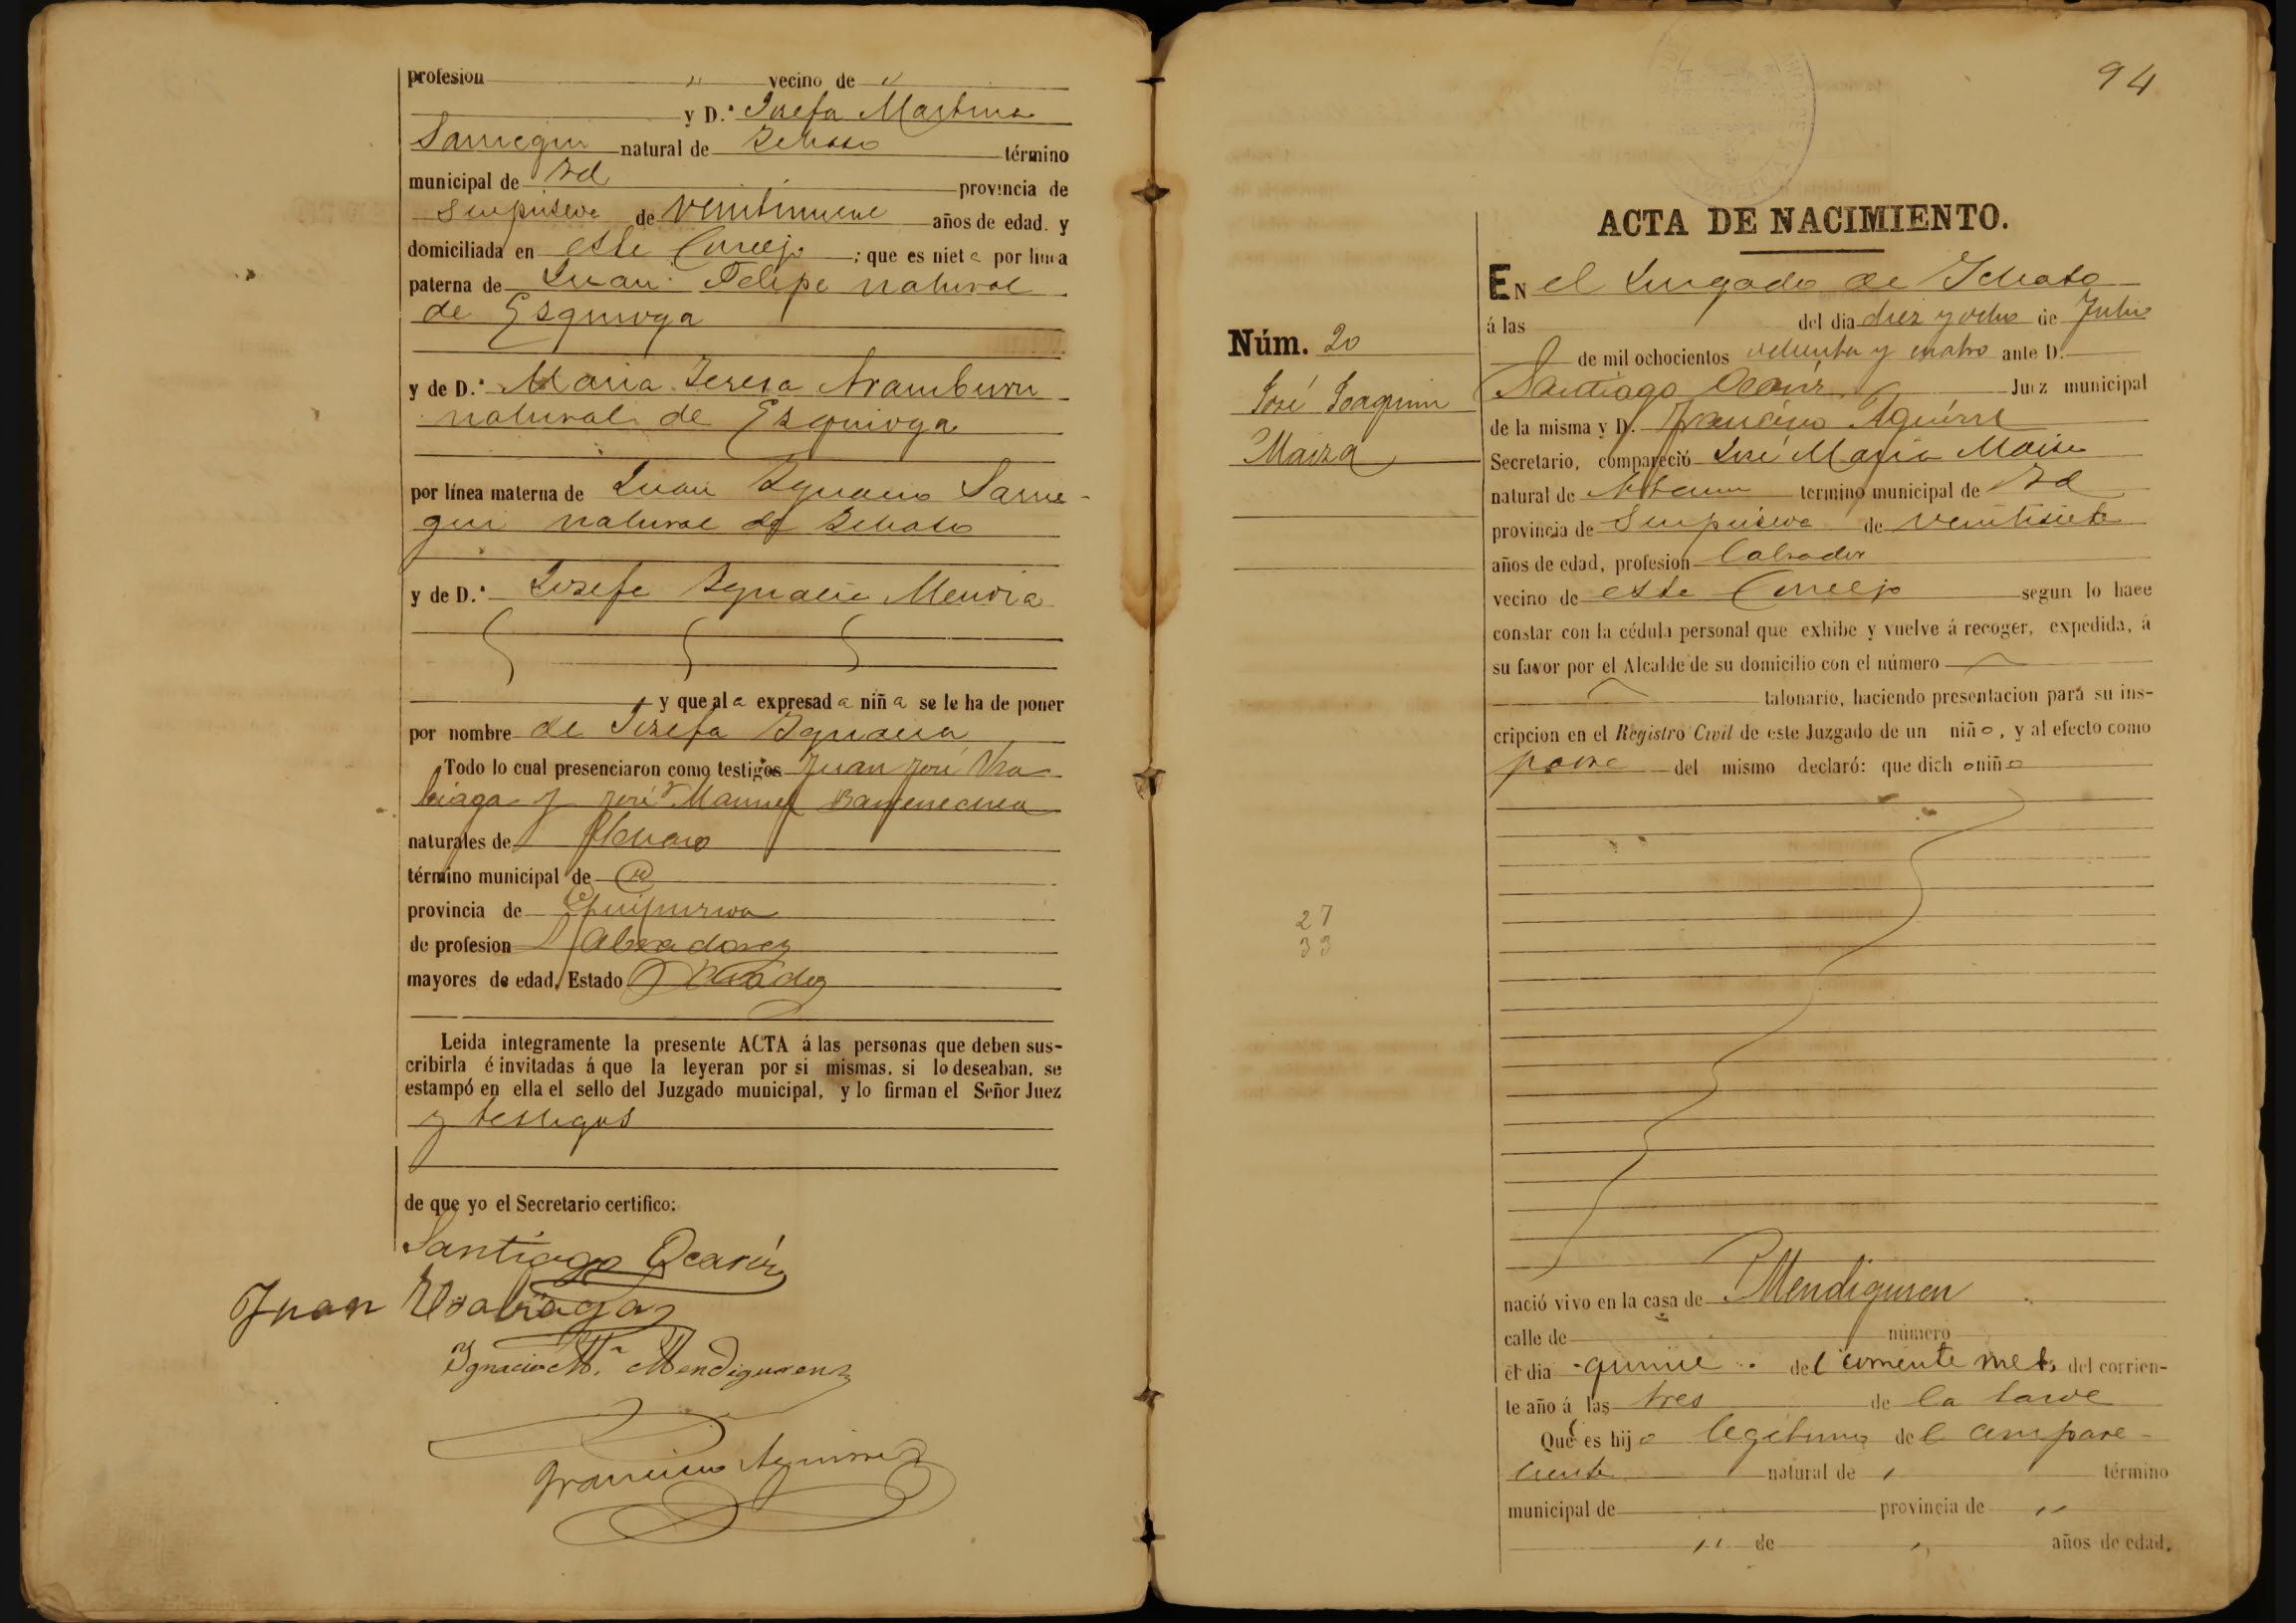 profesion " vecino de "
y D.ª Josefa Martina
Sarriegui natural de Ichaso término
municipal de Id provincia de
Guipuzcoa de veintinueve años de edad. y
domiciliada en este Concejo ; que es nieta por línea
paterna de Juan Felipe natural
de Ezquioga
y de D.ª Maria Teresa Aramburu
natural de Ezquioga
por línea materna de Juan Ignacio Sarrie-
gui natural de Ichaso
y de D.ª Josefa Ignacia Mendia
y que al a expresad a niñ a se le ha de poner
por nombre de Josefa Ignacia
Todo lo cual presenciaron como testigos Juan José Usa-
biaga y José Manuel Barrenechea
naturales de Ichaso
término municipal de id
provincia de Guipuzcoa
de profesion Labradores
mayores de edad, Estado Casados
Leida integramente la presente ACTA á las personas que deben sus-
cribirla é invitadas á que la leyeran por sí mismas. si lo deseaban, se
estampó en ella el sello del Juzgado municipal, y lo firman el Señor Juez
y testigos
de que yo el Secretario certifico:
Santiago Ocariz
Juan Usabiaga
Ignacio M.ª Mendiguren
Francisco Aguirre
94
ACTA DE NACIMIENTO.
EN el Jusgado de Ichaso
á las del dia diez y ocho de Julio
de mil ochocientos ochenta y cuatro ante D.
Núm. 20
José Joaquin
Maiza
Santiago Ocariz Juez municipal
de la misma y D. Francisco Aguirre
Secretario, compareció José Maria Maiza
natural de termino municipal de Id
provincia de Guipuzcoa de veintisiete
años de edad, profesion labrador
vecino de este Concejo segun lo hace
constar con la cédula personal que exhibe y vuelve á recoger, expedida, á
su favor por el Alcalde de su domicilio con el número
talonario, haciendo presentacion para su ins-
cripcion en el Registro Civil de este Juzgado de un niño, y al efecto como
padre del mismo declaró: que dich o niño
27
33
nació vivo en la casa de Mendiguren
calle de número
el dia quince del corriente mes, del corrien-
te año á las tres de la tarde
Que es hijo legitimo del compare-
ciente natural de " término
municipal de provincia de "
" de " años de edad.